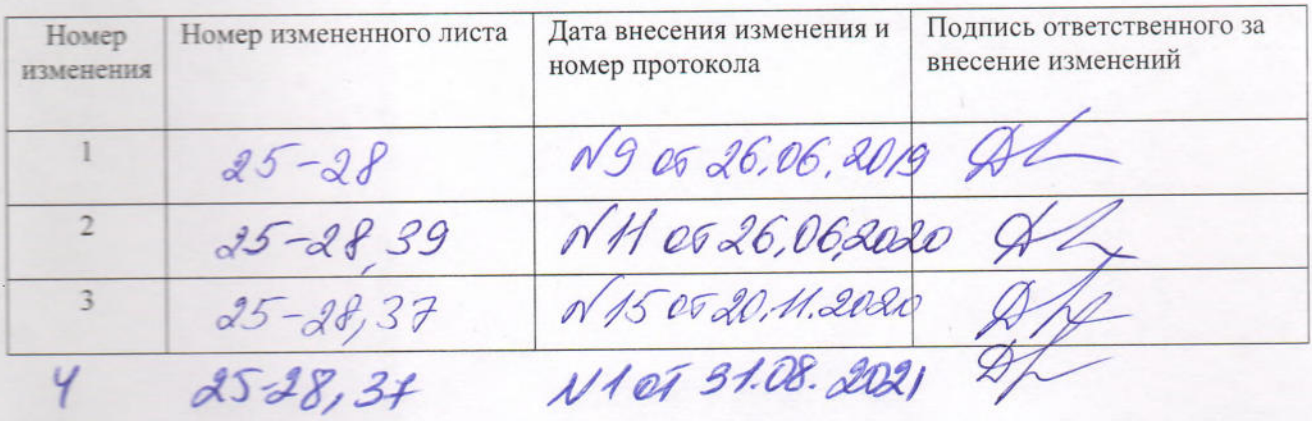 Номер изменения
Номер измененного листа
Дата внесения изменения и номер протокола
Подпись ответственного за внесение изменений
1
25-28
N9 от 26.06.2019
2
25-28,39
N11 от 26.06.2020
3
25-28,37
N15 от 20.11.2020
4
25-28,37
N1 от 31.08.2021